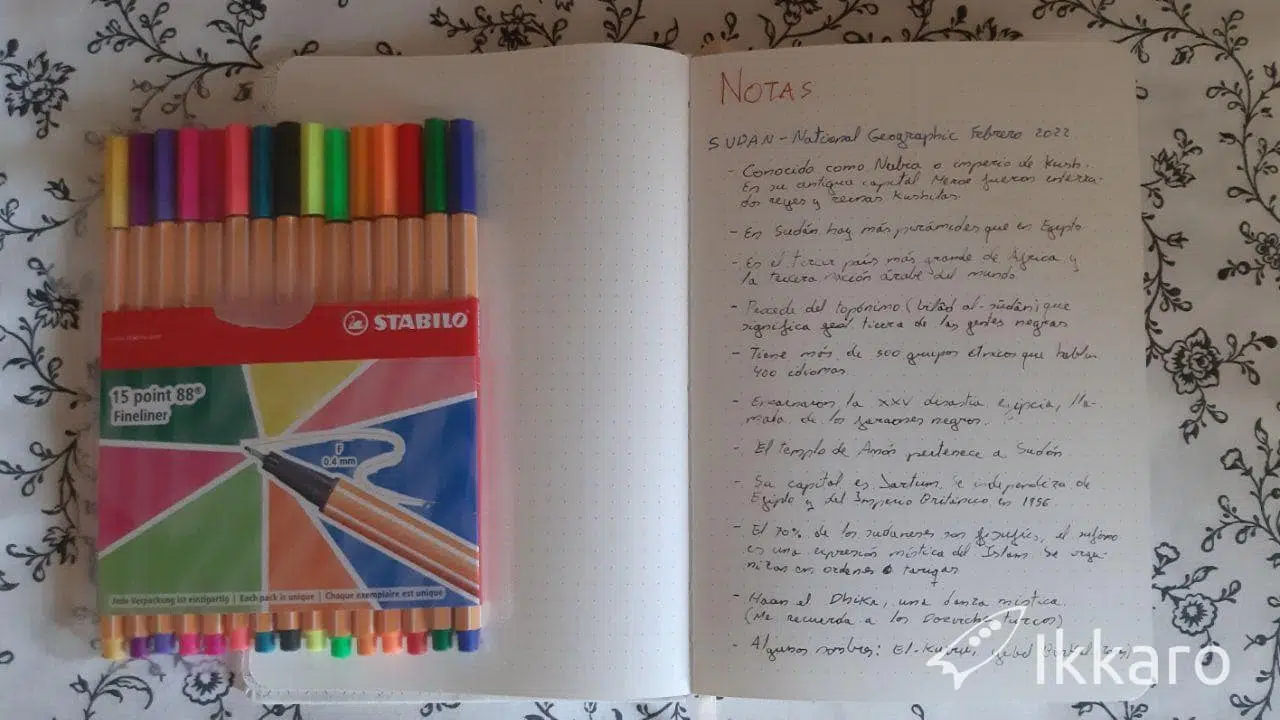 STABILO
15 point 88®
Fineliner
F
0.4 mm
Jede Verpackung ist einzigartig | Each pack is unique | Chaque exemplaire est unique
NOTAS
SUDAN - National Geographic Febrero 2022
- Conocido como Nubia o imperio de Kush.
En su antigua capital Meroe fueron enterra-
dos reyes y reinas Kushitas.
- En Sudán hay más pirámides que en Egipto
- Es el tercer país más grande de África y
la tercera nación árabe del mundo
- Procede del topónimo (bilād al-sūdān) que
significa tierra de las gentes negras
- Tiene más de 500 grupos étnicos que hablan
400 idiomas.
- Encarnaron la XXV dinastía egipcia, lla-
mada de los faraones negros.
- El templo de Amón pertenece a Sudán
- Su capital es Jartum, se independiza de
Egipto y del Imperio Británico en 1956
- El 70% de los sudaneses son el sufismo
es una expresión mística del Islam. Se orga-
nizan en ordenes o tariqas
- el Dhikr, una danza mística.
(Me recuerda a los Derviches turcos)
- Algunos nombres: El-Kurru,
Ikkaro